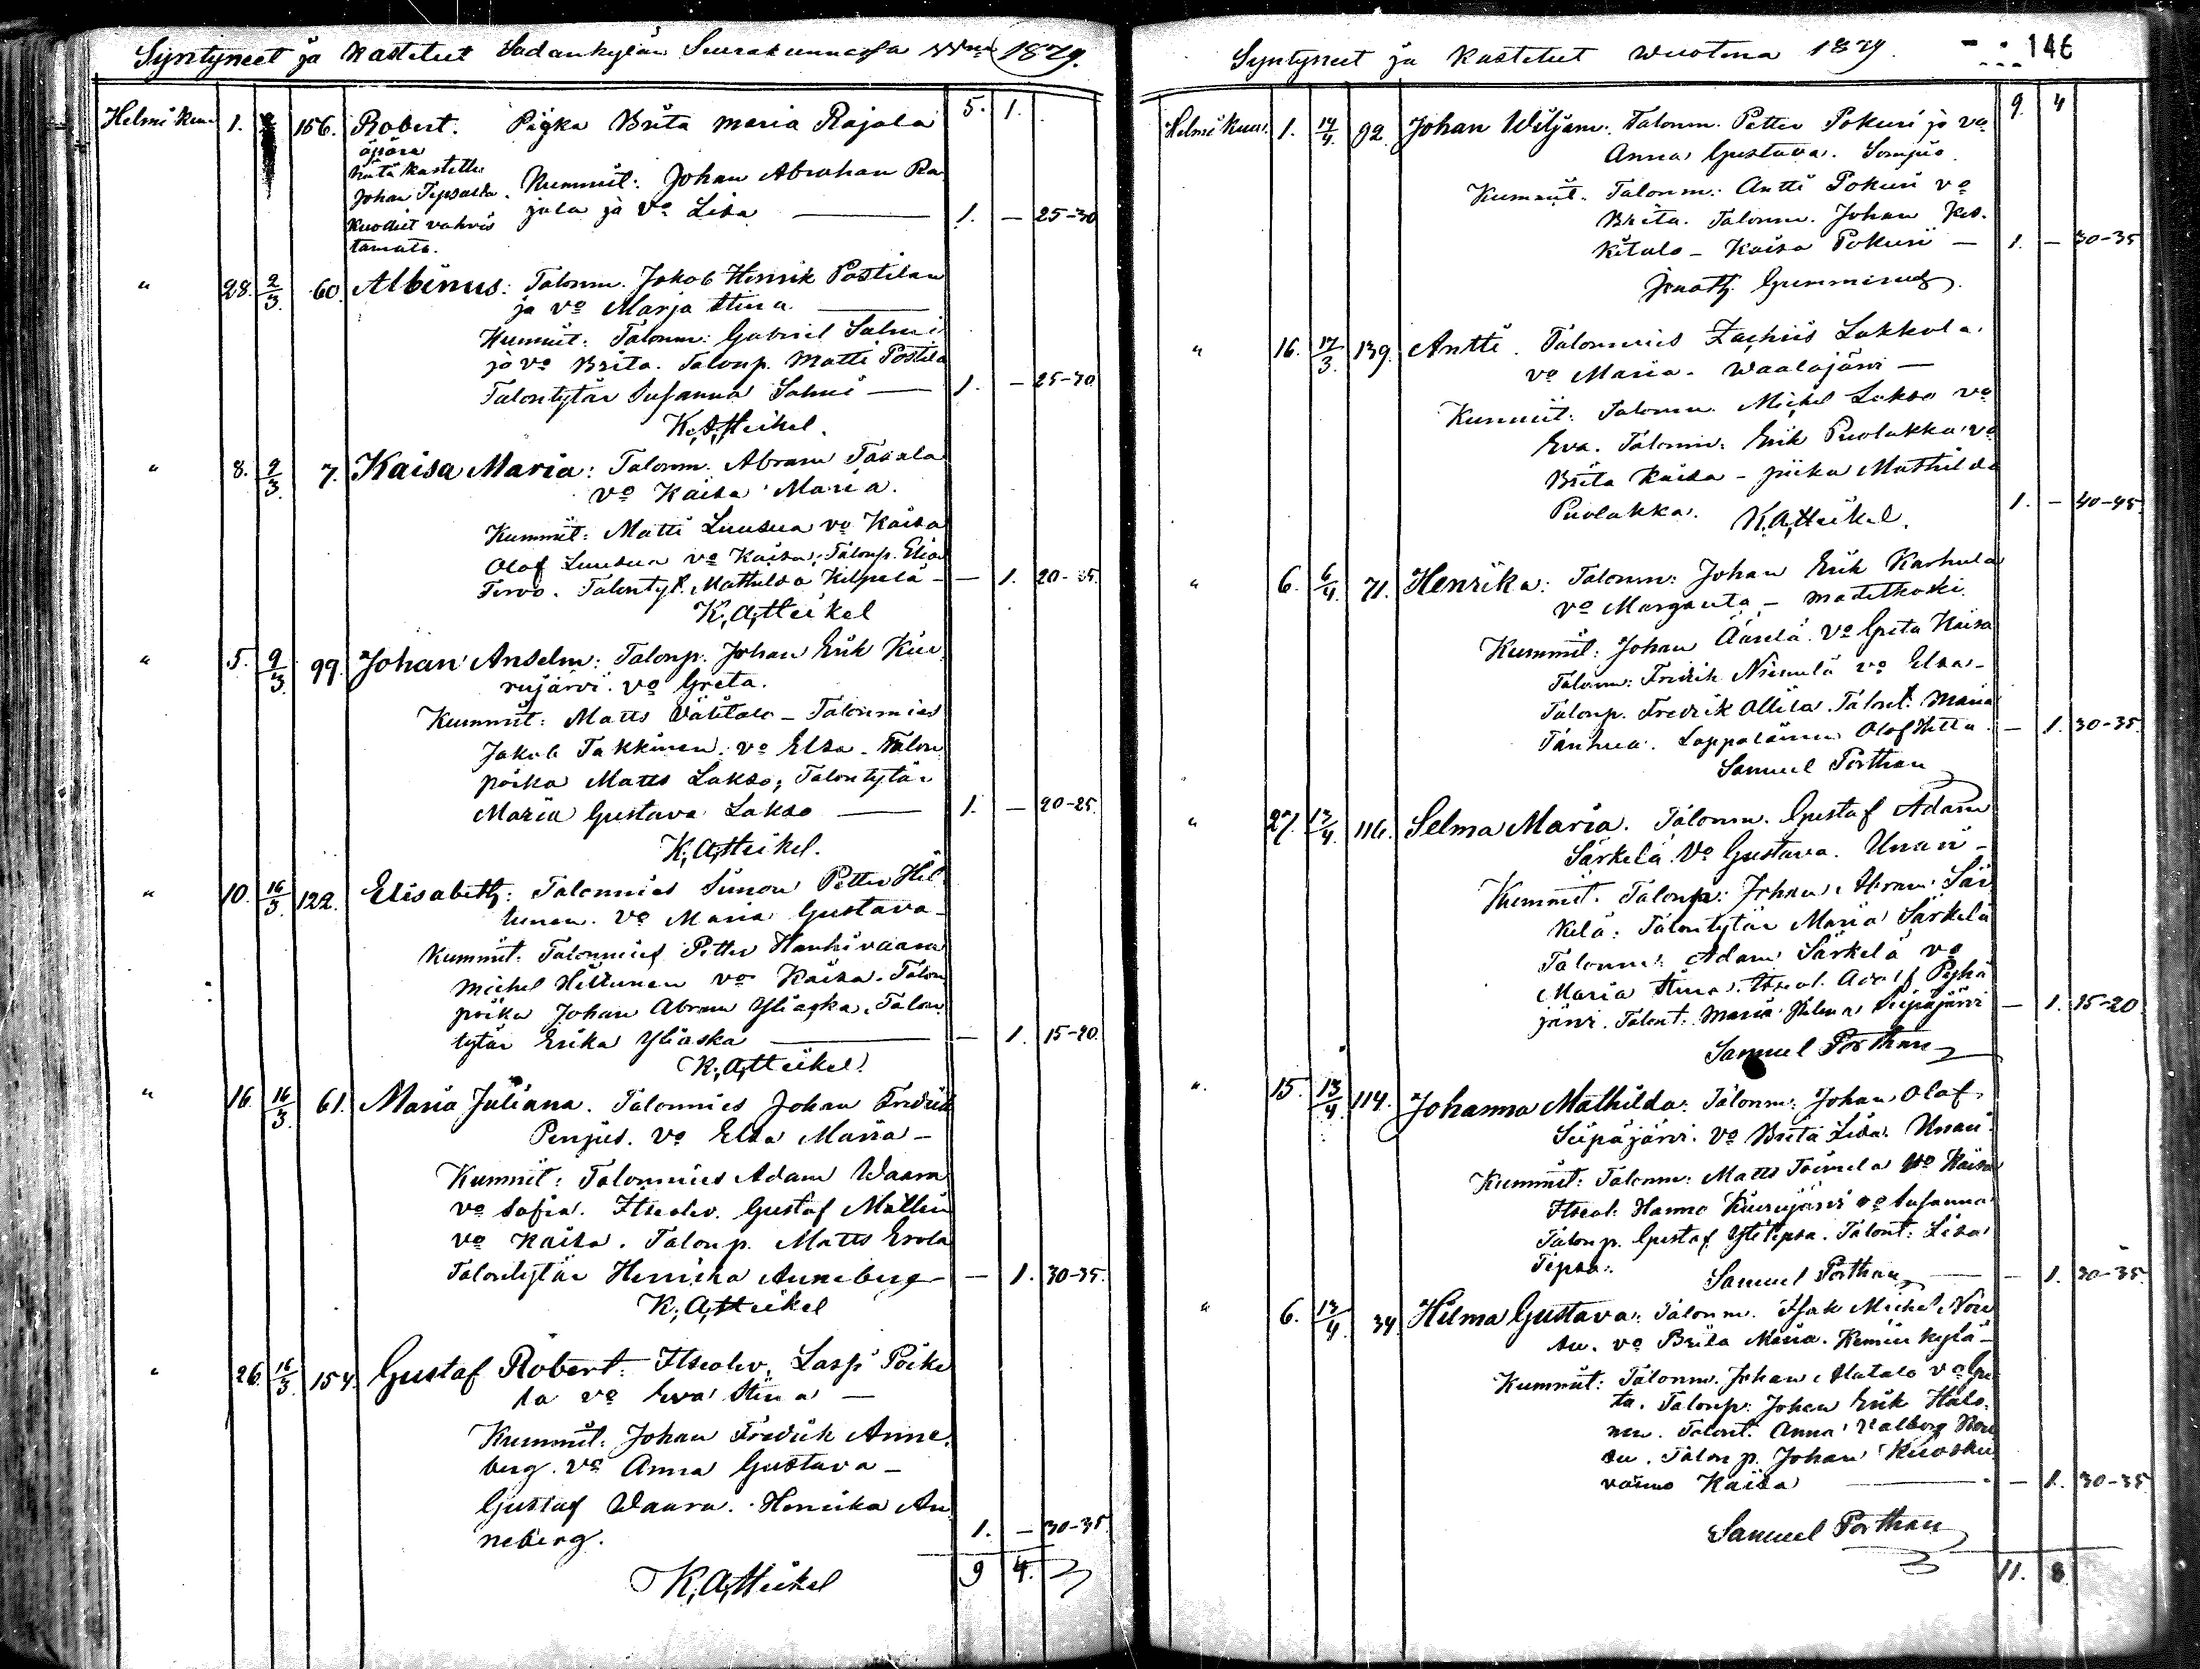 Syntyneet ja Kastetut Sodankylän Seurakunnassa 1879.
Helmi Kuu 1. 156. Robert. Piika Brita Maria Rajala 5. 1.
äpärä
hätä kastettu
Johan Tepsalda. Kummit: Johan Abraham Ra
Kuollut vahvis jala ja vo Lisa — 1. — 25-30
tamata.
" 28. 2/3. 60. Albinus: Talonm. Jakob Henrik Postilan
ja vo Marja Stina. —
Kummit: Talonm: Gabriel Salmi
ja vo Brita. Talonp. Matti Postila
Talontytär Susanna Salmi — 1. — 25-30
K. A. Heikel.
" 8. 9/3. 7. Kaisa Maria: Talonm. Abram Tasala
vo Kaisa Maria.
Kummit: Matti Luusua vo Kaisa
Olof Luusua vo Kaisa, Talonp. Elias
Tervo. Talontyt. Mathilda Kilpelä — — 1. 20-25.
K. A. Heikel
" 5. 9/3. 99. Johan Anselm: Talonp. Johan Erik Kiu
rujärvi. vo Greta.
Kummit: Matts Välitalo — Talonmies
Jakob Takkinen. vo Elsa. Talon
poika Matts Lakso, Talontytär
Maria Gustava Lakso — 1. — 20-25.
K. A. Heikel.
" 10. 16/3. 122. Elisabeth: Talonmies Simon Petter Hil
tunen. vo Maria Gustava —
Kummit: Talonmies Petter Hanhivaara
Michel Hiltunen vo Kaisa. Talon
poika Johan Abram Yliaska. Talon
tytär Erika Yliaska — — 1. 15-20.
K. A. Heikel.
" 16. 16/3. 61. Maria Juliana. Talonmies Johan Fredrik
Penjus. vo Elsa Maria —
Kummit: Talonmies Adam Waara
vo Sofia. Itseolev. Gustaf Mattin
vo Kaisa. Talonp. Matts Erola
Talontytär Henrika Anneberg — — 1. 30-35.
K. A. Heikel
" 26. 16/3. 154. Gustaf Robert: Itseolev. Lassi Poike
la vo Eva Stina —
Kummit: Johan Fredrik Anne
berg. vo Anna Gustava —
Gustaf Waara. Henrika An
neberg. 1. — 30-35.
K. A. Heikel 9 4.
Syntyneet ja Kastetut Wuotena 1879. 146
Helmi Kuu. 1. 14/4. 92. Johan Wiljam: Talonm. Petter Pokuri ja vo 9. 4
Anna Gustava. Sompio.
Kummit. Talonm: Antti Pokuri vo
Brita. Talonm. Johan Kes-
kitalo — Kaisa Pokuri — 1. — 30-35
Gummerus
" 16. 17/3. 139. Antti. Talonmies Lakkala.
vo Maria. Waalajärvi —
Kummit: Talonm. Michel Lakso vo
Eva. Talonm: Erik Puolakka vo
Brita Kaisa — piika Mathilda
Puolakka. K. A. Heikel. 1. — 40-45.
" 6. 6/4. 71. Henrika: Talonm: Johan Erik Karhula
vo Margareta — Madetkoski.
Kummit: Johan Äärelä. vo Greta Kaisa
Talonm: Fredrik Niemelä vo Elsa —
Talonp. Fredrik Ollila. Talont. Maria
Tanhua. Lappalainen Olof Hetta. — 1. 30-35.
Samuel Porthan
" 27. 13/4. 116. Selma Maria. Talonm. Gustaf Adam
Särkelä. vo Gustava. Unari —
Kummit. Talonp: Johan Abram Sär
kelä: Talontytär Maria Särkelä
Talonm: Adam Särkelä vo
Maria Stina. Itseol. Adolf Pyhä
järvi. Talont: Maria Seipäjärvi — 1. 15-20
Samuel Porthan
" 15. 13/4. 114. Johanna Mathilda: Talonm: Johan Olof
Seipäjärvi. vo Brita Lisa. Unari.
Kummit: Talonm: Matts Toimela vo Kaisa
Itseol: Hannu Kiurujärvi vo Susanna
Talonp. Gustaf Ylitepsa. Talont: Lisa
Tepsa. Samuel Porthan — — 1. 30-35.
" 6. 13/4. 34. Hilma Gustava: Talonm. Isak Michel Nou
su. vo Brita Maria. Kemin kylä —
Kummit: Talonm. Johan Alatalo vo Gre
ta. Talonp: Johan Erik Halo-
nen. Talont. Anna Walborg Nou
su. Talonp. Johan Kuosku
vaimo Kaisa — — 1. 30-35
Samuel Porthan
11. 8.